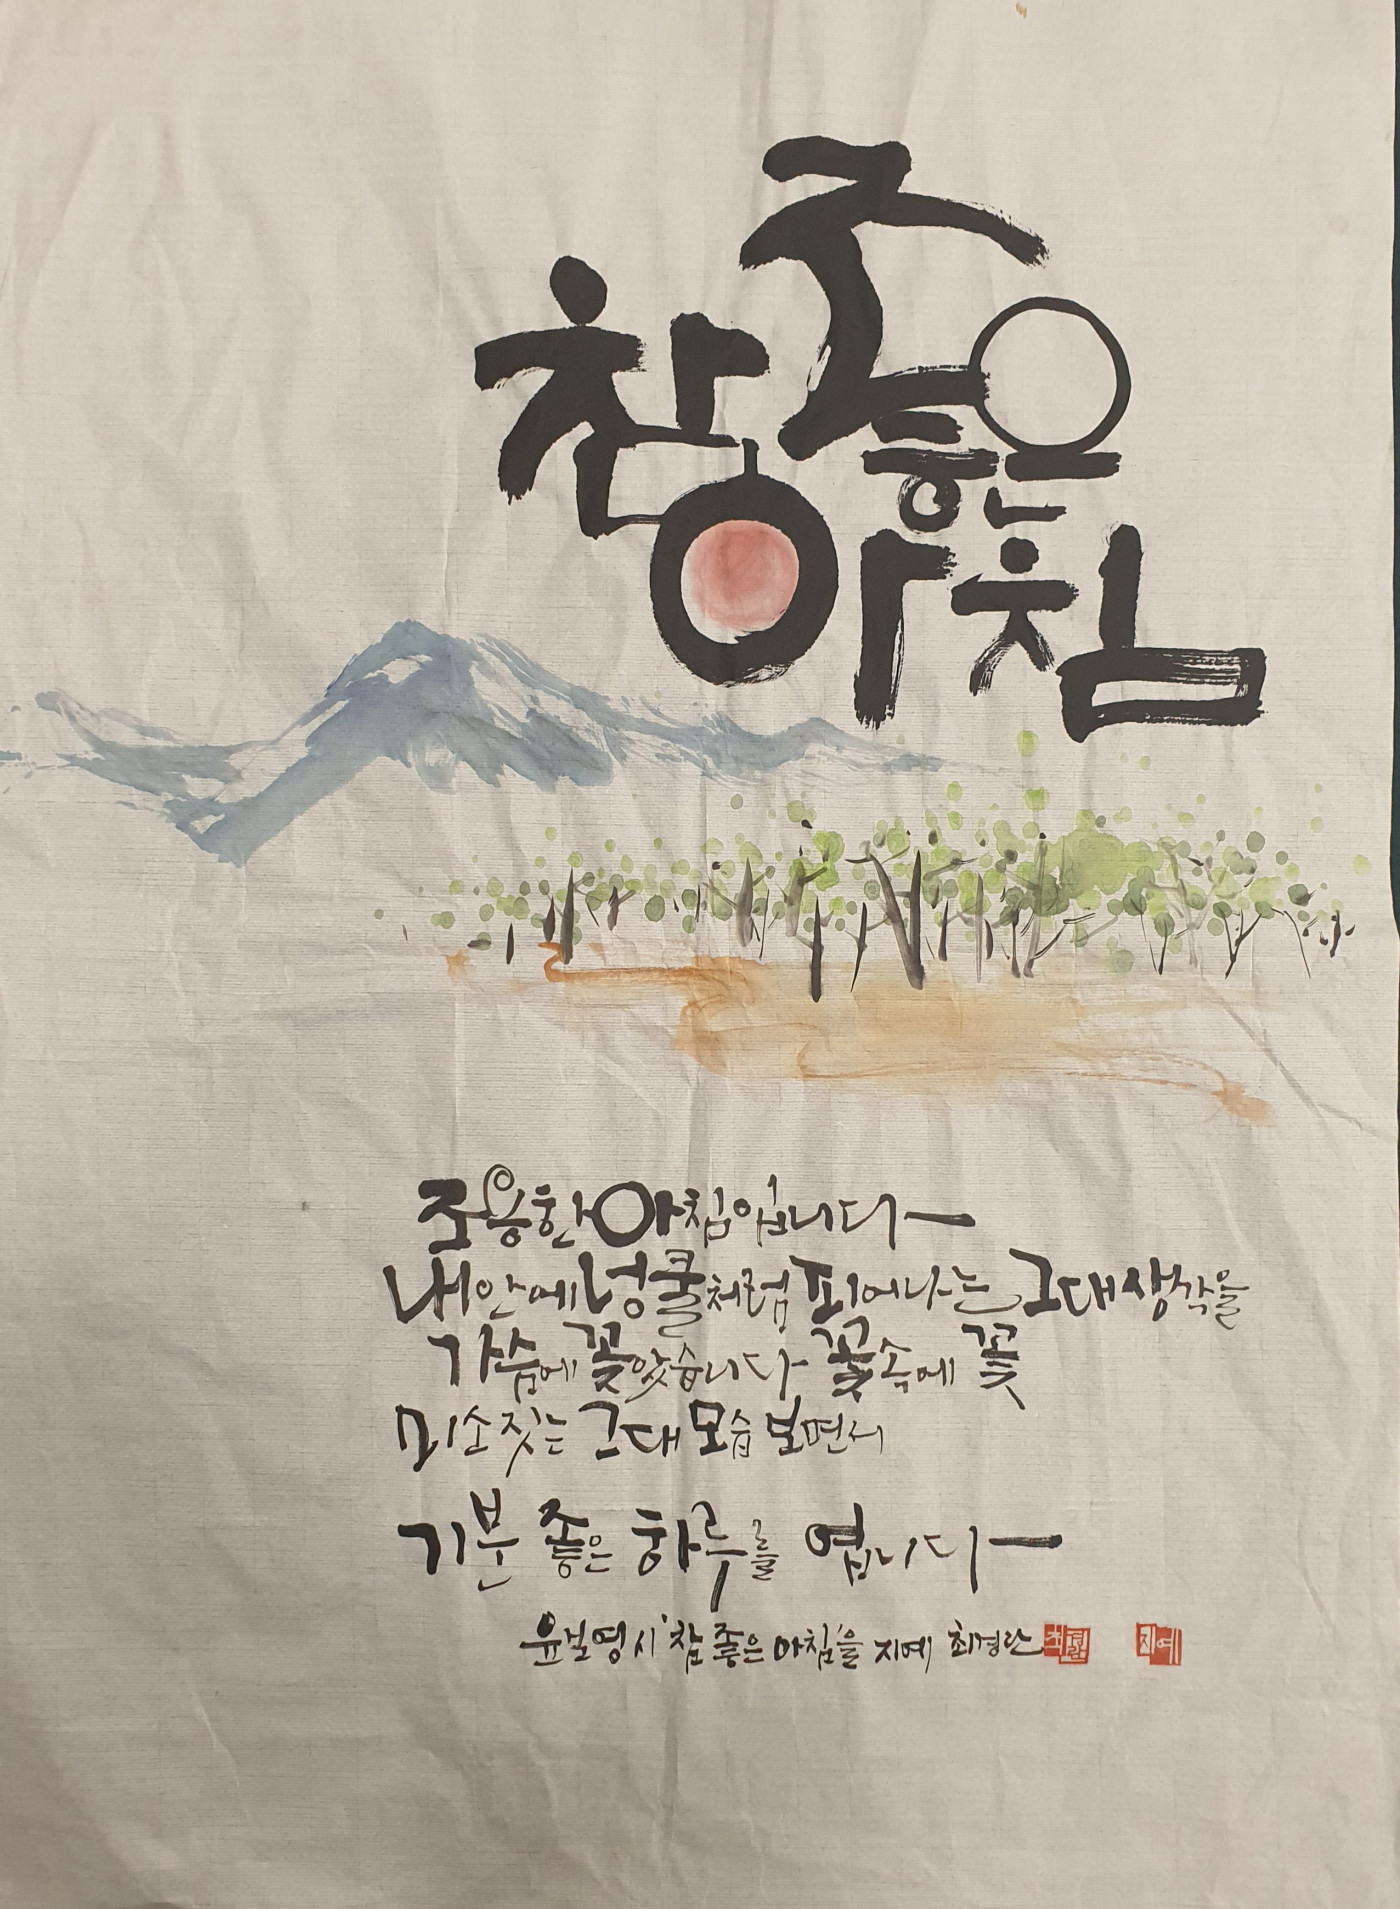 참 좋은
아침
조용한 아침입니다
내 안에 넝쿨처럼 피어나는 그대 생각을
가슴에 꽂았습니다 꽃속에 꽃
미소짓는 그대 모습 보면서
기분 좋은 하루를 엽니다
윤보영 시 '참 좋은 아침'을 지예 최경란
최경란 지예